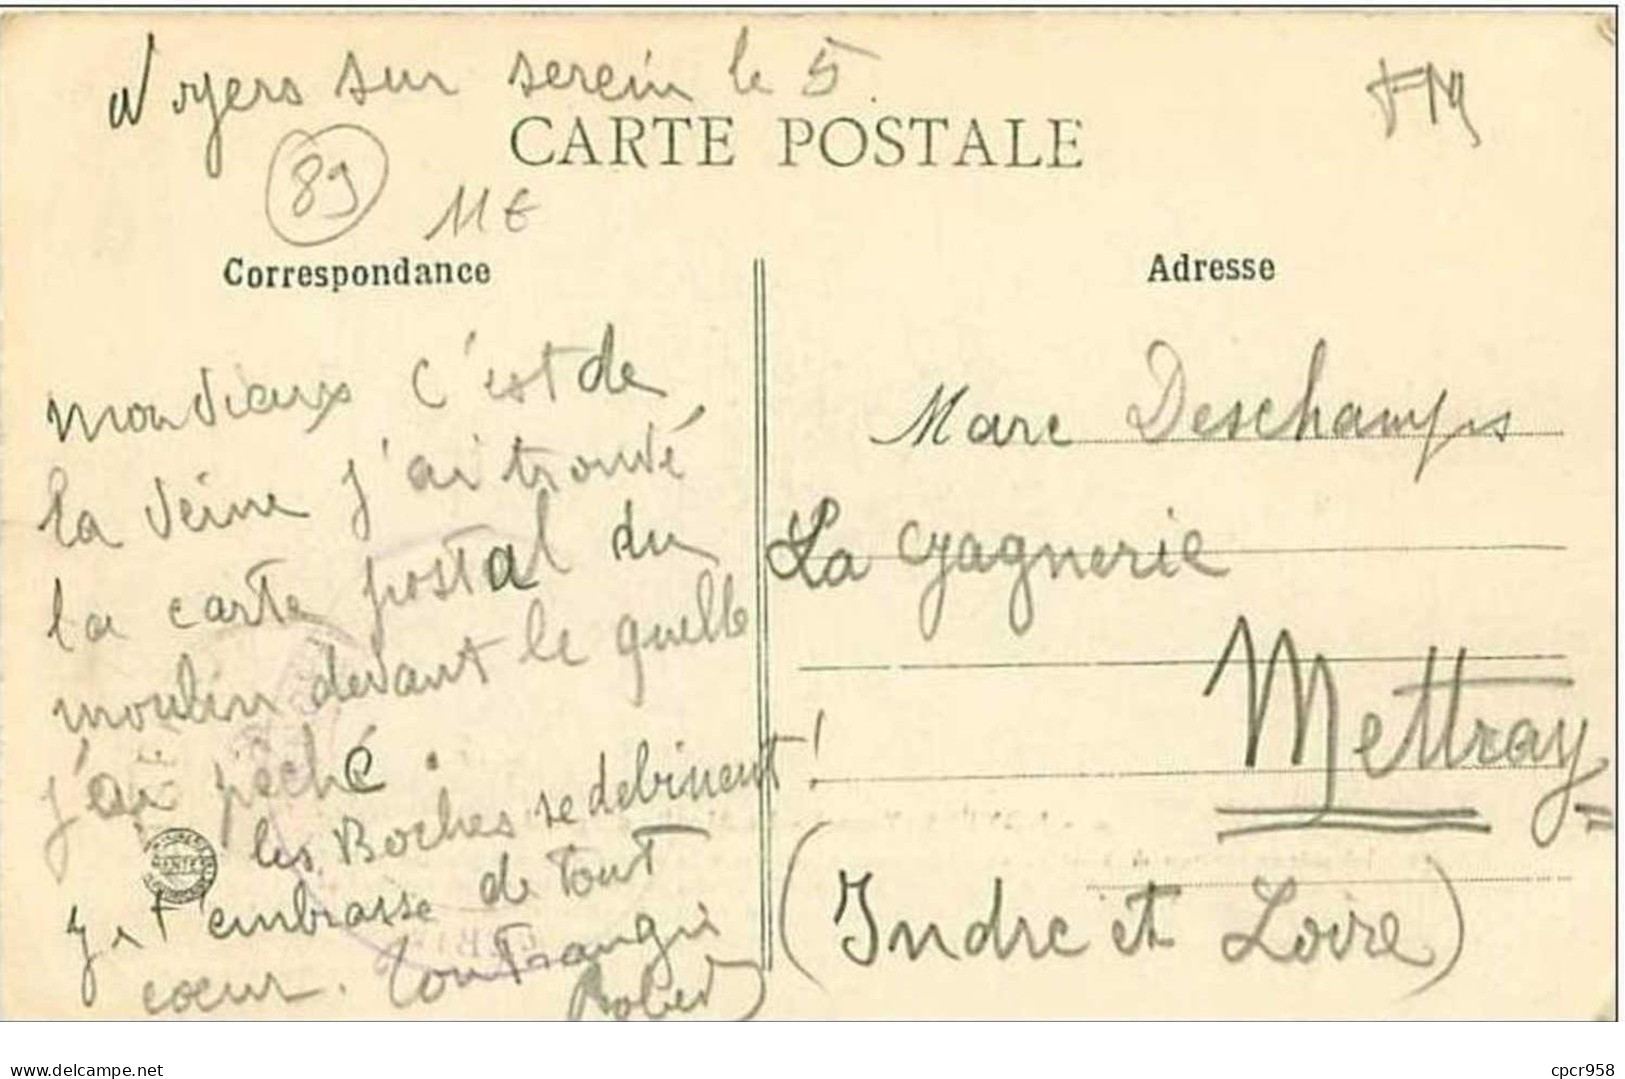 Noyers sur serein le 5.
FM
CARTE POSTALE
89
11€
Correspondance
mon vieux c'est de
la veine j'ai trouvé
la carte postal du
moulin devant le quelle
j'ai pêché.
les Boches se debinent!
Je t'embrasse de tout
coeur. Ton frangin
Robert
Adresse
Marc Deschamps
La Gagnerie
Mettray
(Indre et Loire)
www.delcampe.net
cpcr958